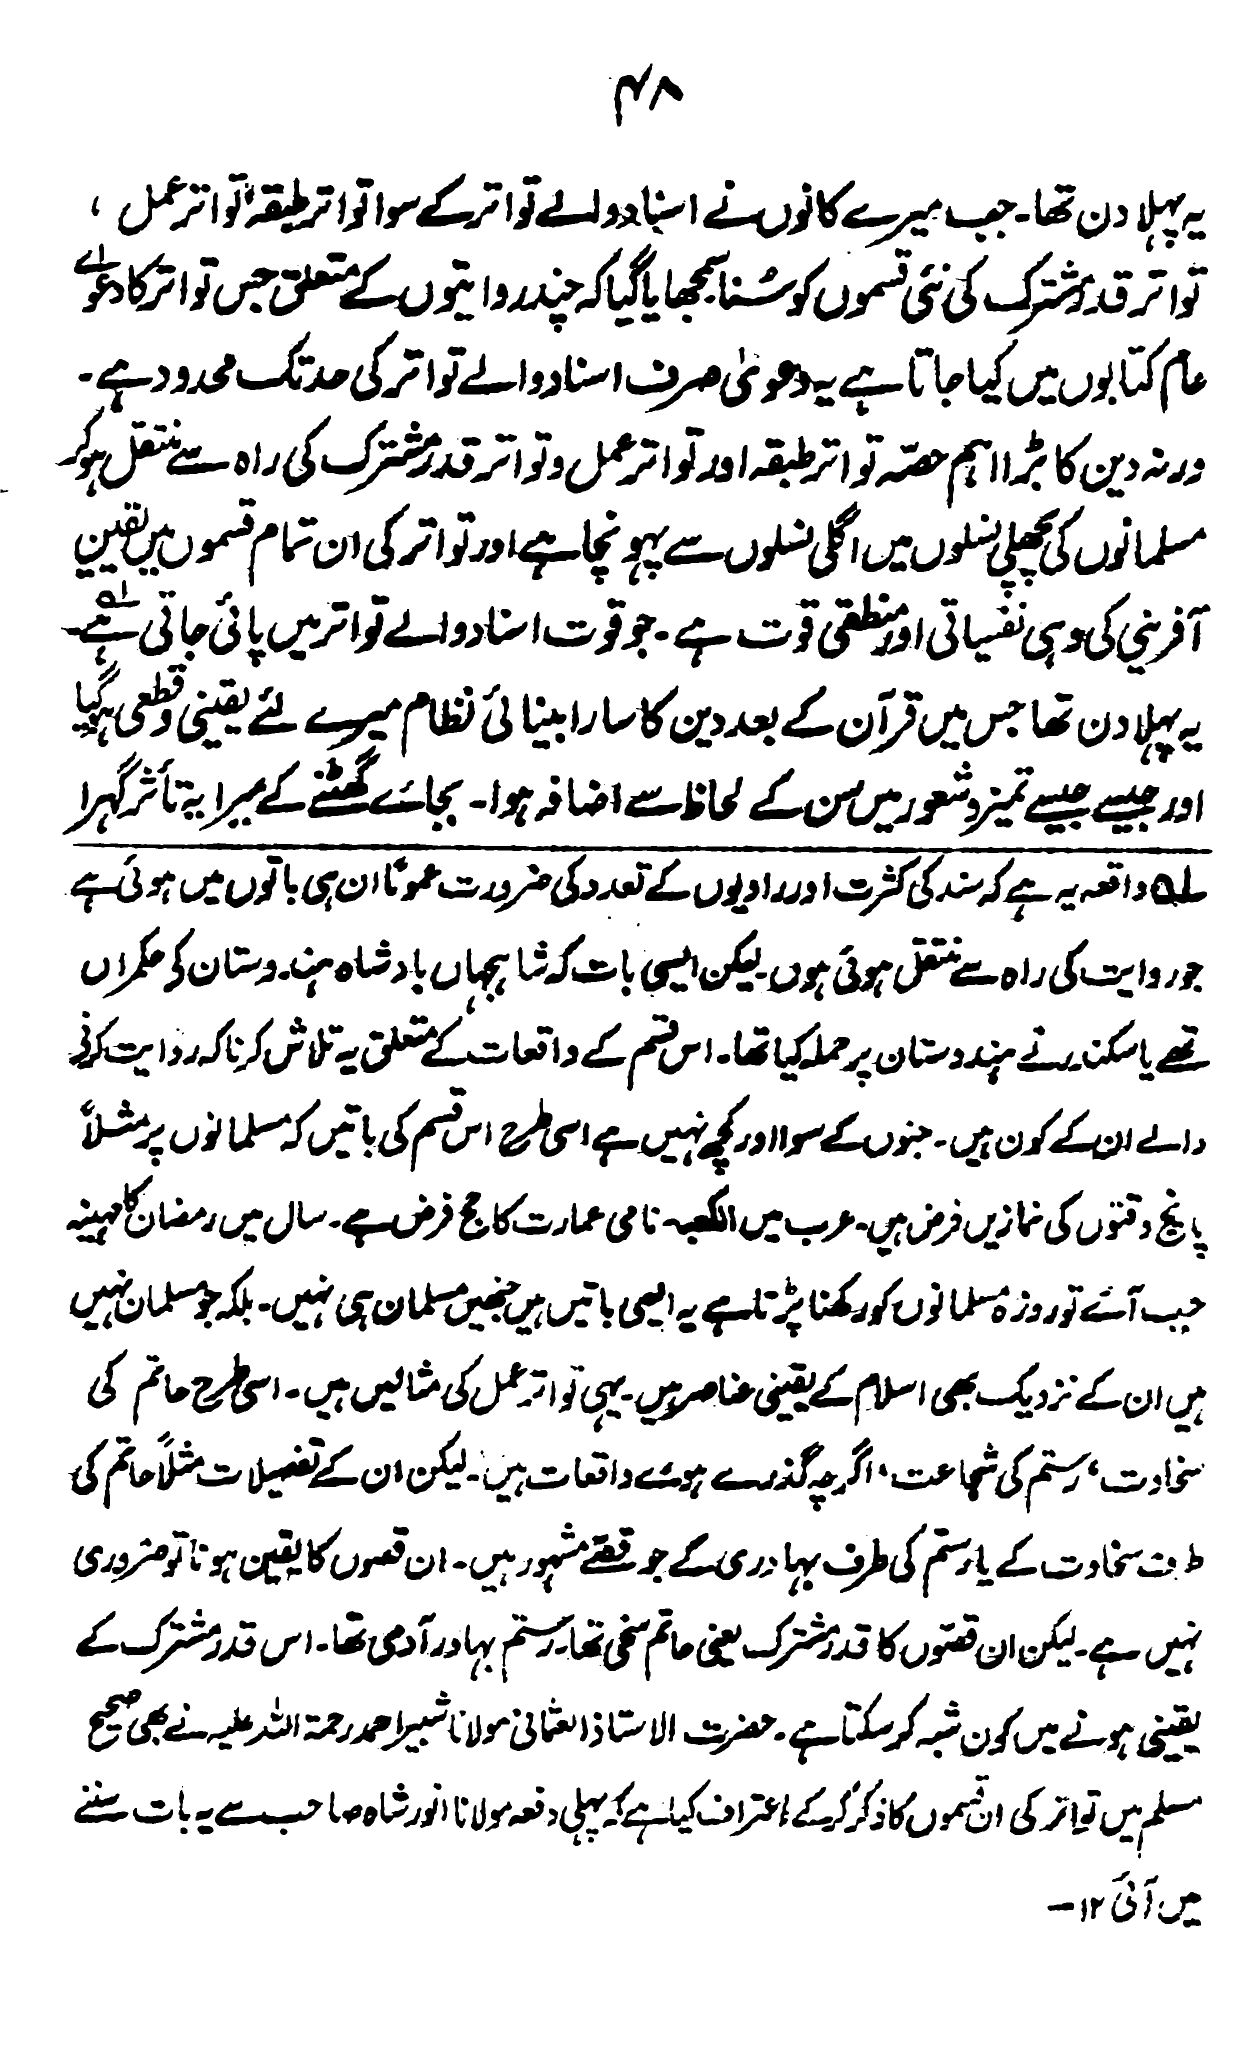 ۴۸
یہ پہلا دن تھا۔ جب میرے کانوں نے اسناد والے تواتر کے سوا تواتر طبقہ، تواتر عمل،
تواتر قدر مشترک کی نئی قسموں کو سُنا سمجھایا گیا کہ چند روایتوں کے متعلق جس تواتر کا دعوائے
عام کتابوں میں کیا جاتا ہے یہ دعویٰ صرف اسناد والے تواتر کی حد تک محدود ہے۔
ورنہ دین کا بڑا اہم حصہ تواتر طبقہ اور تواتر عمل و تواتر قدر مشترک کی راہ سے منتقل ہو کر
مسلمانوں کی پچھلی نسلوں میں اگلی نسلوں سے پہونچا ہے اور تواتر کی ان تمام قسموں میں یقین
آفرینی کی وہی نفسیاتی اور منطقی قوت ہے۔ جو قوت اسناد والے تواتر میں پائی جاتی ہے۔ لہ
یہ پہلا دن تھا جس میں قرآن کے بعد دین کا سارا بینائی نظام میرے لئے یقینی و قطعی ہو گیا
اور جیسے جیسے تمیز و شعور میں سن کے لحاظ سے اضافہ ہوا۔ بجائے گھٹنے کے میرا یہ تأثر گہرا
لہ واقعہ یہ ہے کہ سند کی کثرت اور راویوں کے تعدد کی ضرورت عموماً ان ہی باتوں میں ہوئی ہے
جو روایت کی راہ سے منتقل ہوئی ہوں۔ لیکن ایسی بات کہ شاہجہاں بادشاہ ہندوستان کے حکمراں
تھے یا سکندر نے ہندوستان پر حملہ کیا تھا۔ اس قسم کے واقعات کے متعلق یہ تلاش کرنا کہ روایت کرنے
والے ان کے کون ہیں۔ جنوں کے سوا اور کچھ نہیں ہے اسی طرح اس قسم کی باتیں کہ مسلمانوں پر مثلاً
پانچ وقتوں کی نمازیں فرض ہیں۔ عرب میں الکعبہ نامی عمارت کا حج فرض ہے۔ سال میں رمضان کا مہینہ
جب آئے تو روزہ مسلمانوں کو رکھنا پڑتا ہے یہ ایسی باتیں ہیں جنھیں مسلمان ہی نہیں۔ بلکہ جو مسلمان نہیں
ہیں ان کے نزدیک بھی اسلام کے یقینی عناصر ہیں۔ یہی تواتر عمل کی مثالیں ہیں۔ اسی طرح حاتم کی
سخاوت، رستم کی شجاعت، اگرچہ گذرے ہوئے واقعات ہیں۔ لیکن ان کے تفصیلات مثلاً حاتم کی
طرف سخاوت کے یا رستم کی طرف بہادری کے جو قصّے مشہور ہیں۔ ان قصوں کا یقین ہونا تو ضروری
نہیں ہے۔ لیکن ان قصّوں کا قدر مشترک یعنی حاتم سخی تھا۔ رستم بہادر آدمی تھا۔ اس قدر مشترک کے
یقینی ہونے میں کون شبہ کر سکتا ہے۔ حضرت الاستاذ العثمانی مولانا شبیر احمد رحمۃ اللہ علیہ نے بھی صحیح
مسلم میں تواتر کی ان قسموں کا ذکر کر کے اعتراف کیا ہے کہ پہلی دفعہ مولانا انور شاہ صاحب سے یہ بات سننے
میں آئی ۱۲۔